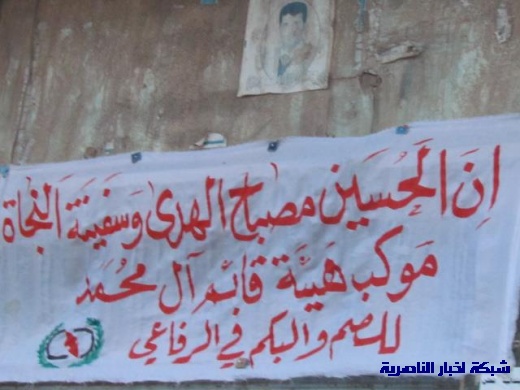 ان الحُسَين مصباح الهدى وسفينة النجاة
مَوكب هَيئة قائم آل محُمَد
للصم والبكم في الرفاعي
شبكة اخبار الناصرية